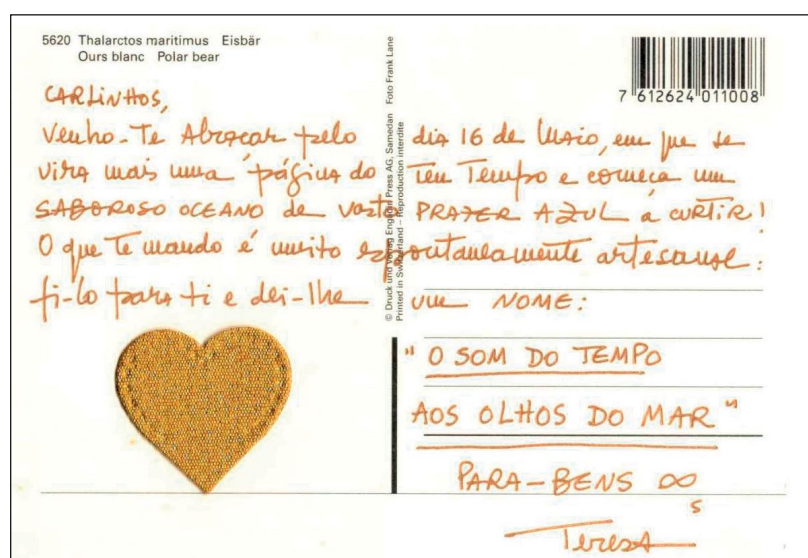 5620 Thalarctos maritimus Eisbär
Ours blanc Polar bear
© Druck und Verlag Engadin Press AG, Samedan Foto Frank Lane
Printed in Switzerland – Reproduction interdite
7 612624 011008
CARLINHOS,
Venho-Te Abraçar pelo dia 16 de Maio, em que se
vira mais uma página do teu Tempo e começa um
SABOROSO OCEANO de vasto PRAZER AZUL a CURTIR!
O que Te mando é muito espontaneamente artesanal:
fi-lo para ti e dei-lhe um NOME:
"O SOM DO TEMPO
AOS OLHOS DO MAR"
PARA-BENS
Teresa